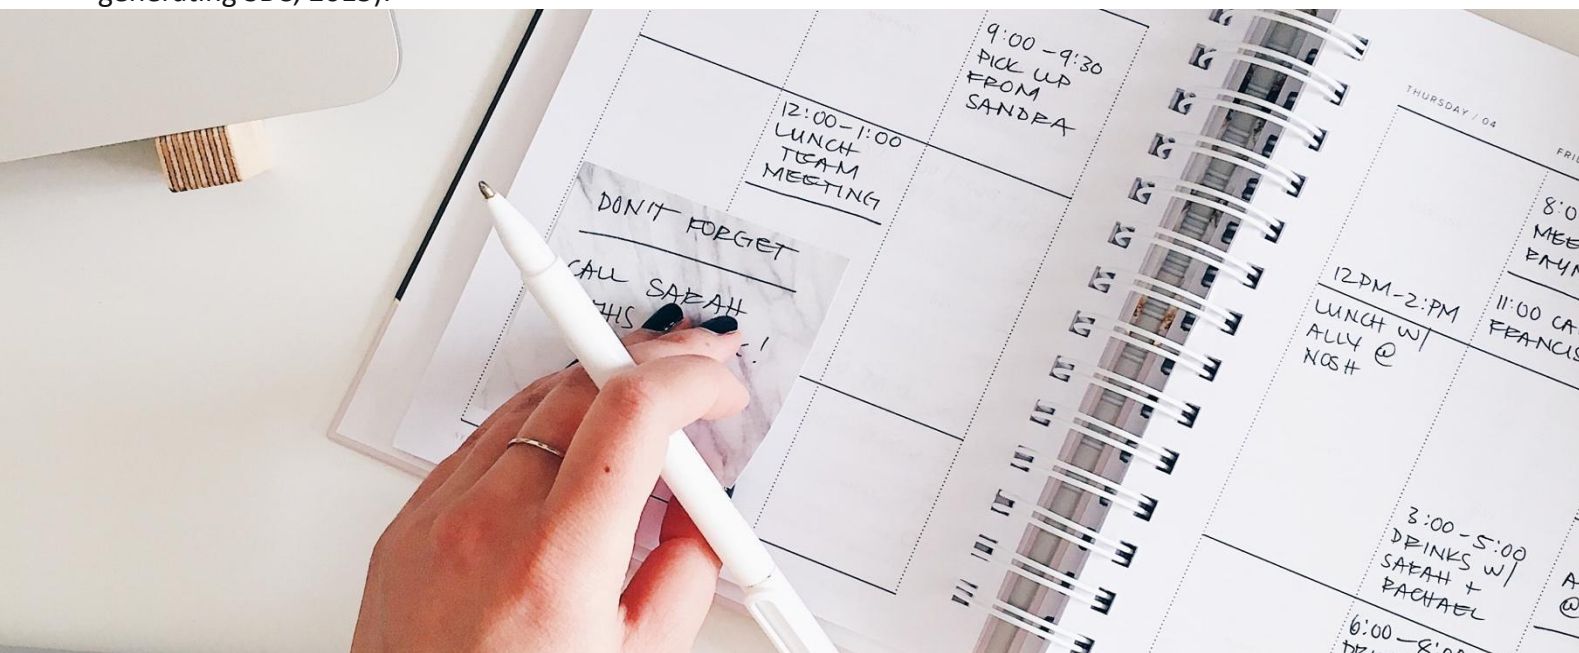 9:00 - 9:30
PICK UP
FROM
SANDRA
12:00 - 1:00
LUNCH
TEAM
MEETING
DON'T FORGET
CALL SARAH
THIS
!
THURSDAY / 04
12PM - 2:PM
LUNCH W/
ALLY @
NOSH
3:00 - 5:00
DRINKS W/
SARAH +
RACHAEL
6:00 -
8:0
MEE
11:00 CA
FRANCIS
A
@